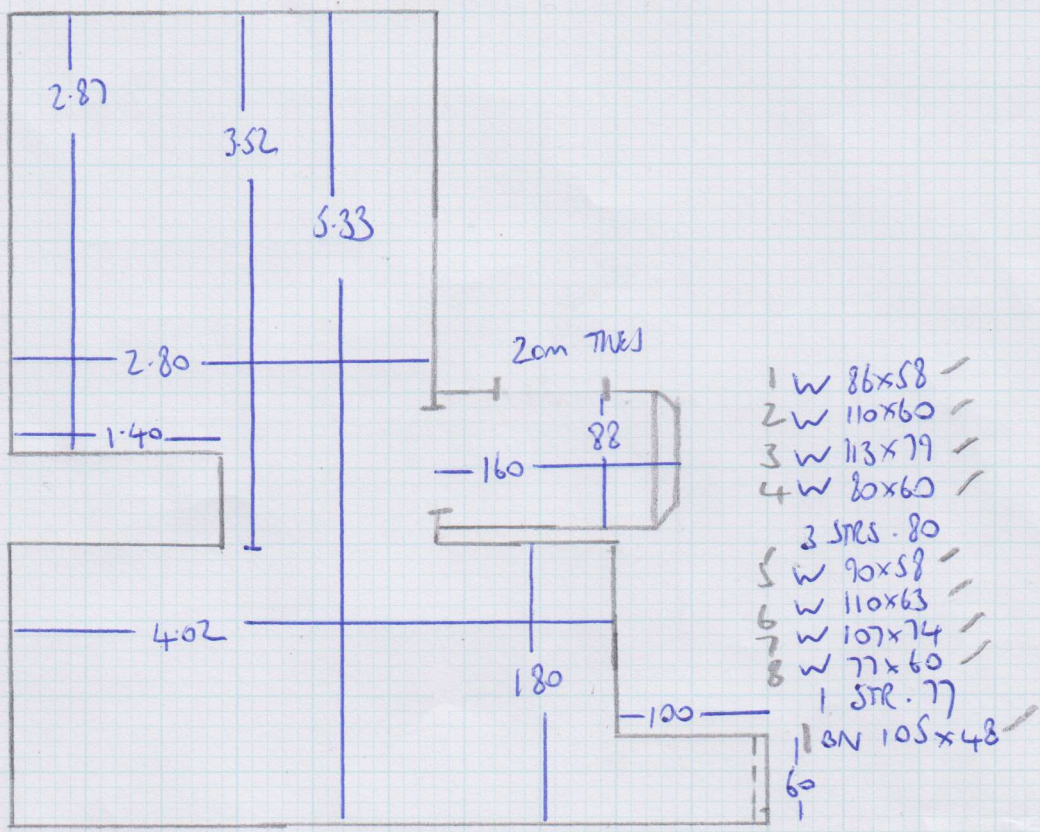 2.87
3.52
5.33
2.80
1.40
20m TILES
88
160
4.02
180
100
60
1 W 86x58
2 W 110x60
3 W 113x79
4 W 80x60
3 STRS. 80
5 W 90x58
6 W 110x63
7 W 107x74
8 W 77x60
1 STR. 77
1 BN 105x48